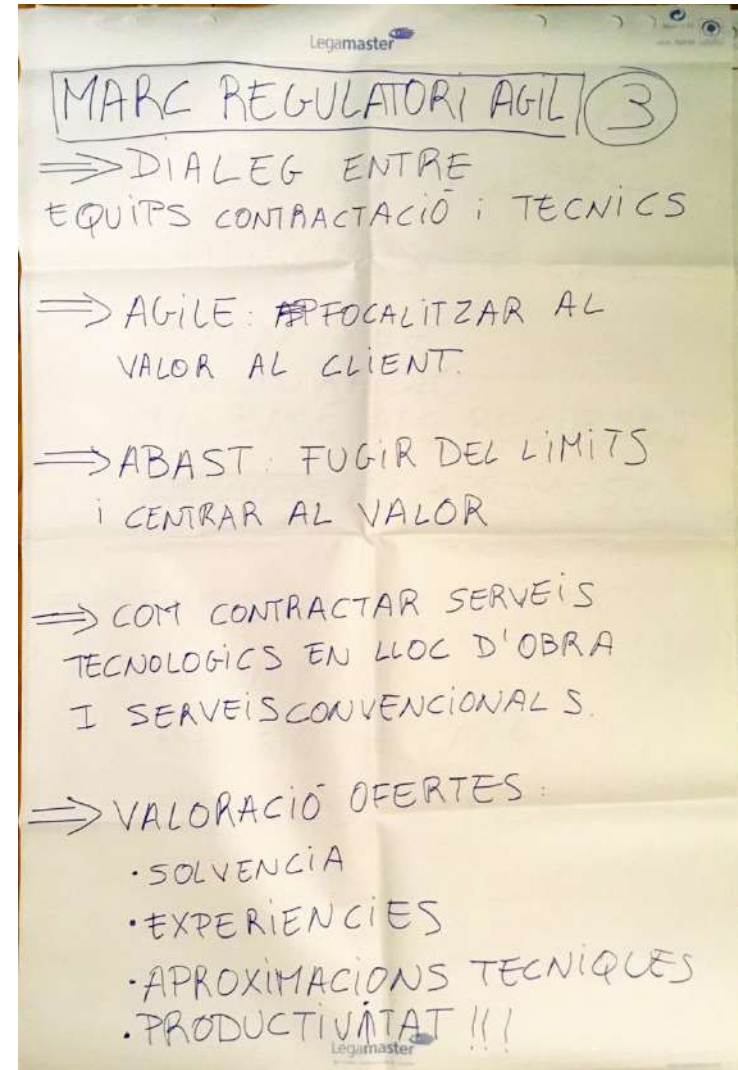 Legamaster
MARC REGULATORI AGIL 3
⇒ DIALEG ENTRE
EQUIPS CONTRACTACIÓ i TECNICS
⇒ AGILE: FOCALITZAR AL
VALOR AL CLIENT.
⇒ ABAST: FUGIR DEL LIMITS
i CENTRAR AL VALOR
⇒ COM CONTRACTAR SERVEIS
TECNOLOGICS EN LLOC D'OBRA
I SERVEIS CONVENCIONALS.
⇒ VALORACIÓ OFERTES:
· SOLVENCIA
· EXPERIENCIES
· APROXIMACIONS TECNIQUES
· PRODUCTIVITAT !!!
Legamaster